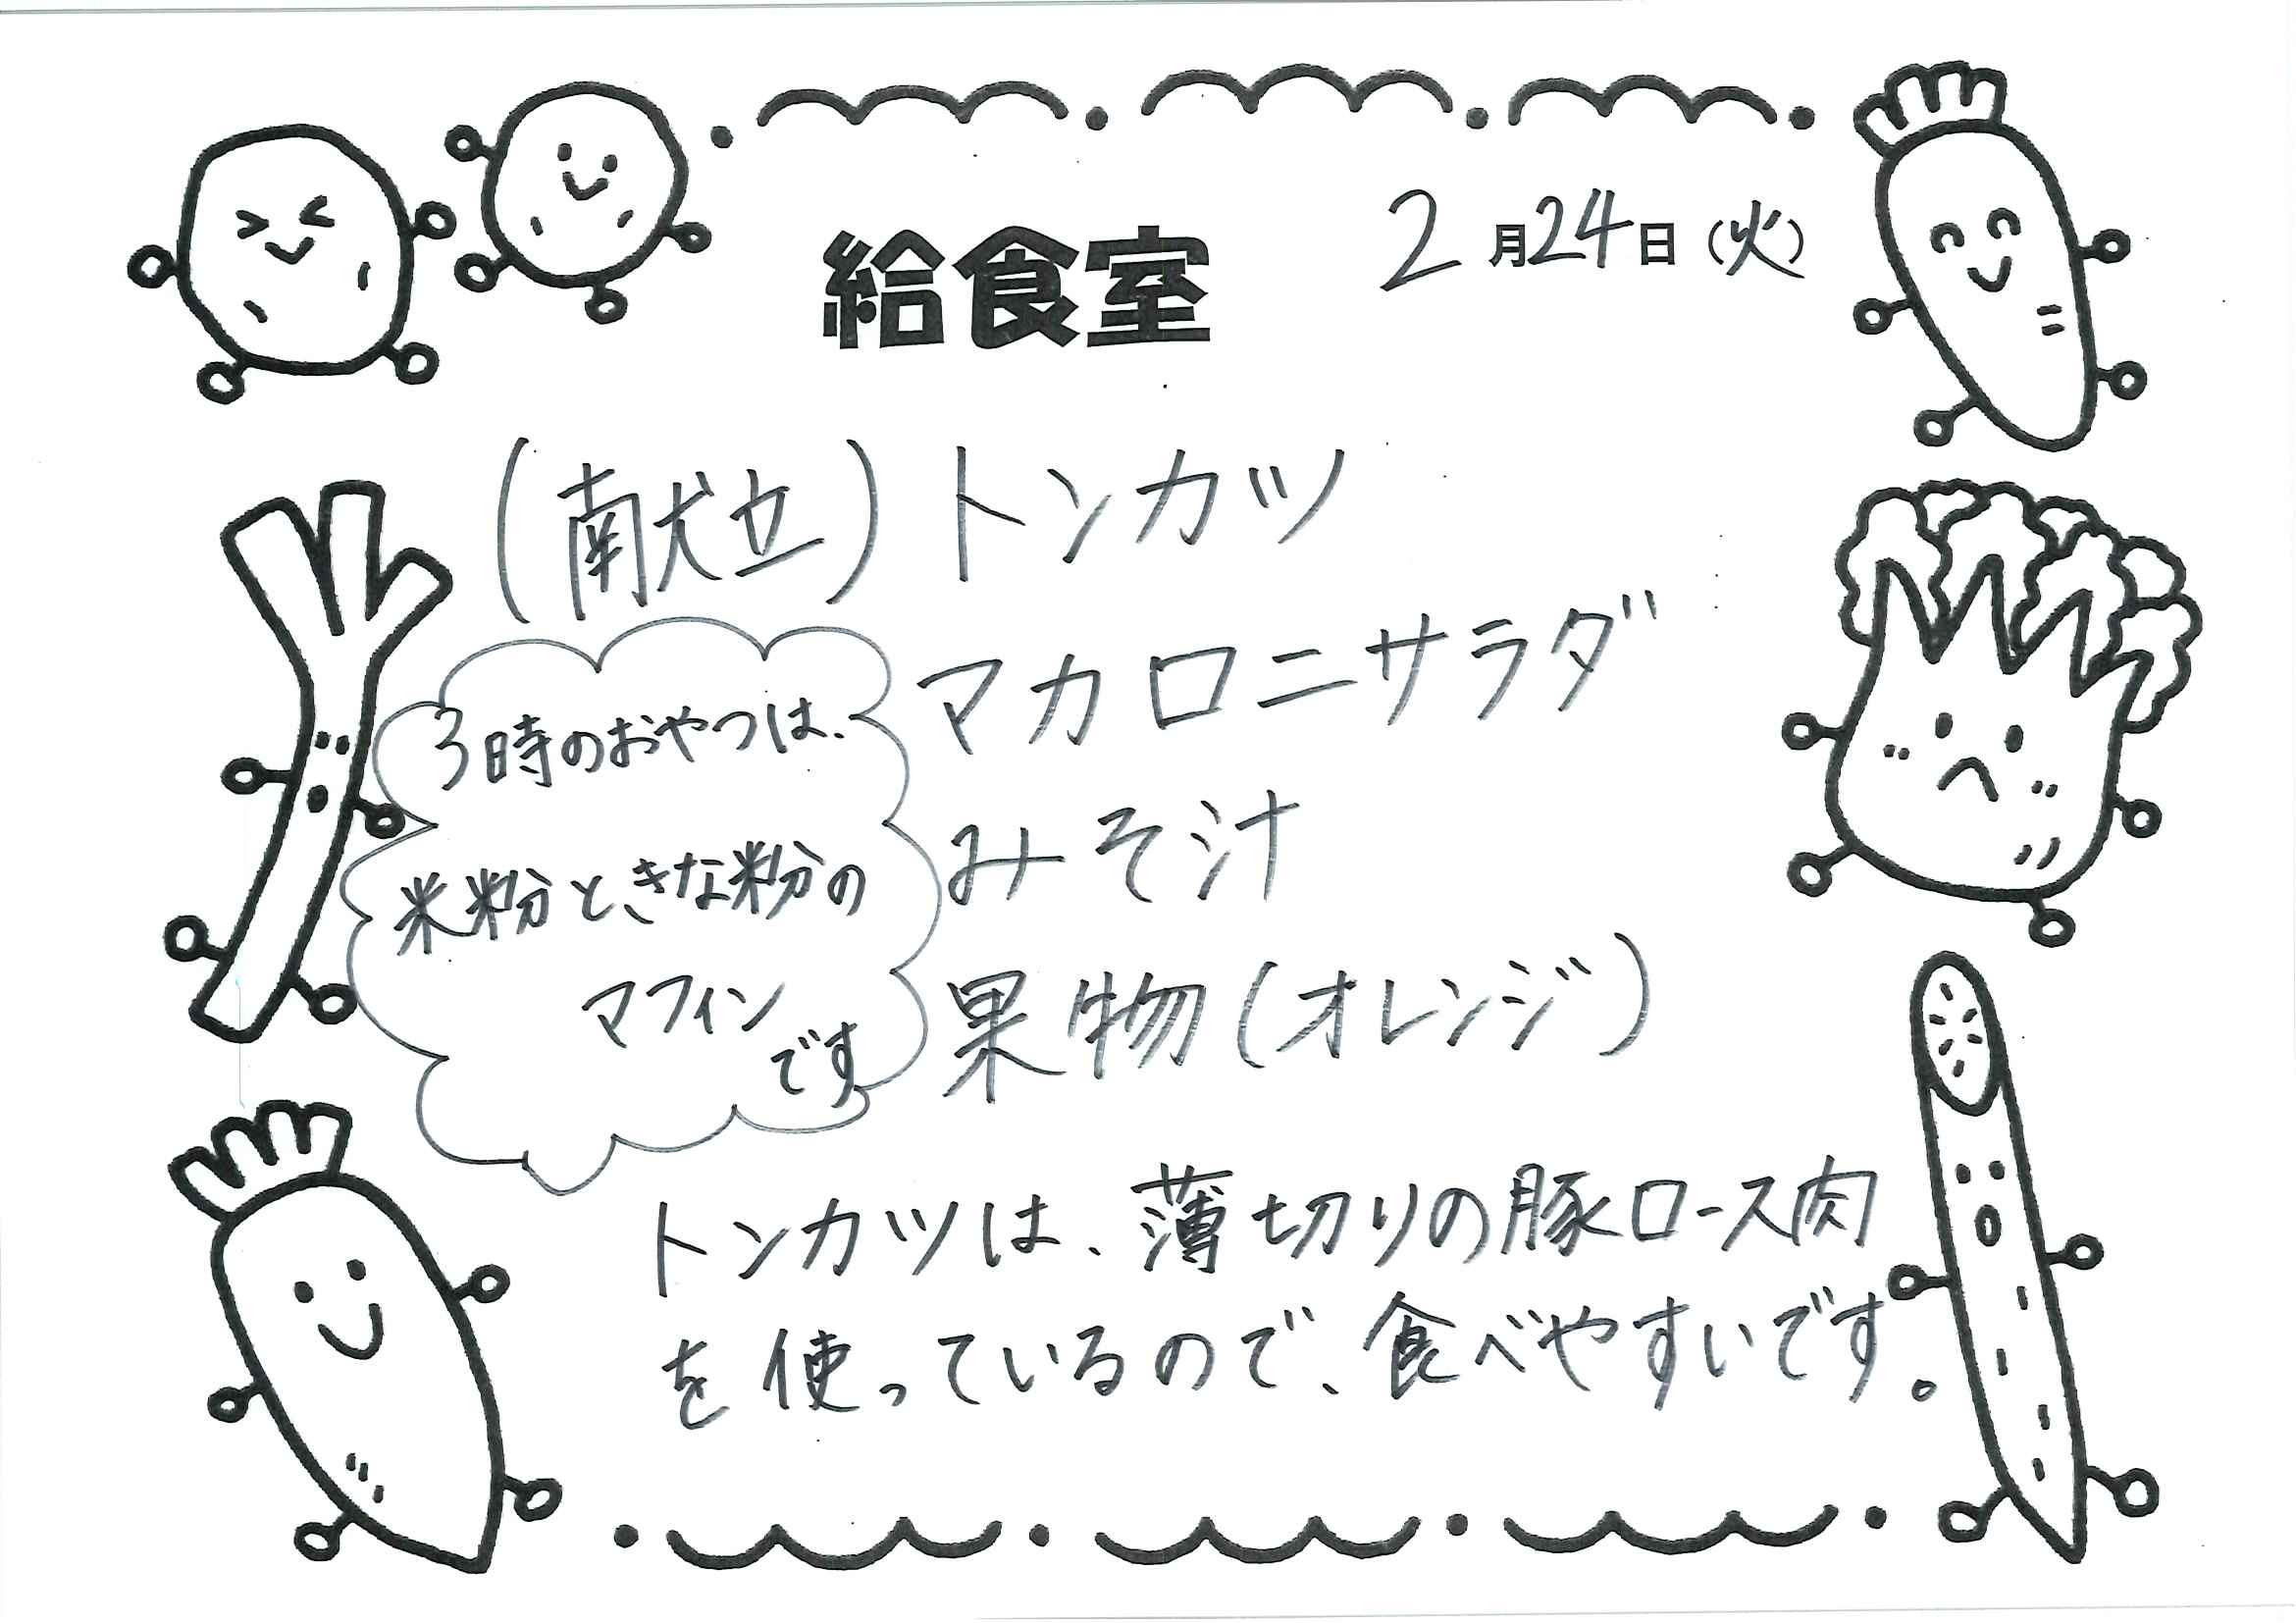 給食室
2月24日(火)
(献立)トンカツ
マカロニサラダ
みそ汁
果物(オレンジ)
3時のおやつは、
米粉ときな粉の
マフィン
です
トンカツは、薄切りの豚ロース肉
を使っているので、食べやすいです。